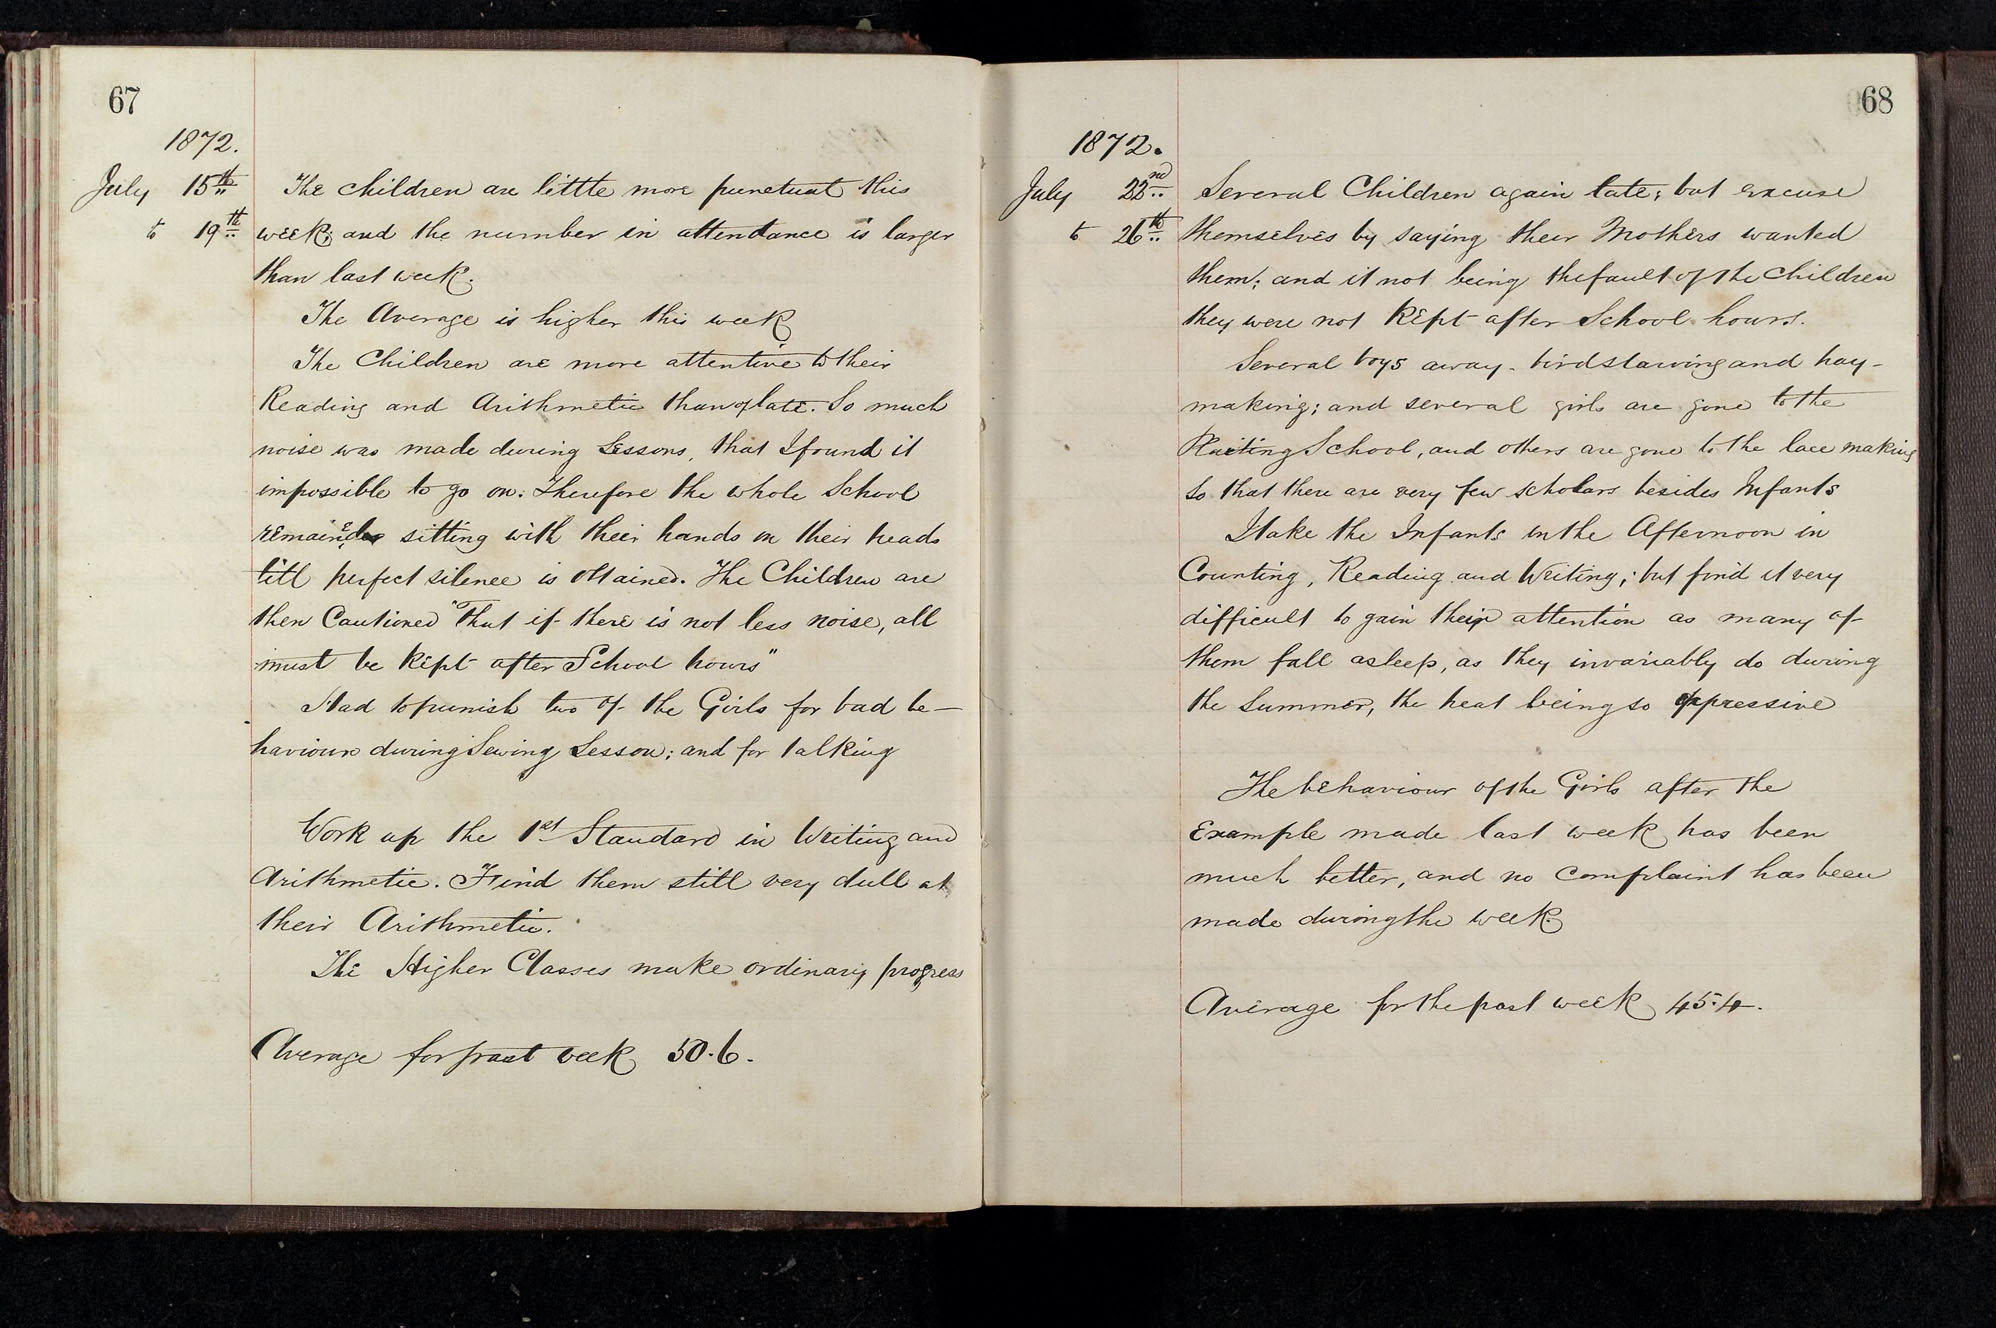 67
1872.
July 15th The Children are little more punctual this
to 19th week; and the number in attendance is larger
than last week.
The Average is higher this week
The Children are more attentive to their
Reading and Arithmetic than of late. So much
noise was made during Lessons, that I found it
impossible to go on. Therefore the whole School
remained sitting with their hands on their heads
till perfect silence is obtained. The Children are
then Cautioned "That if there is not less noise, all
must be kept after School hours"
Had to punish two of the Girls for bad be-
haviour during Sewing Lesson; and for talking
Work up the 1st Standard in Writing and
Arithmetic. Find them still very dull at
their Arithmetic.
The Higher Classes make ordinary progress
Average for past week 50.6.
68
1872.
July 22nd Several Children again late; but excuse
to 26th themselves by saying their Mothers wanted
them; and it not being the fault of the Children
they were not kept after School hours.
Several boys away - birdstarving and hay-
making; and several girls are gone to the
Plaiting School, and others are gone to the lace making
so that there are very few scholars besides Infants
I take the Infants in the Afternoon in
Counting, Reading and Writing; but find it very
difficult to gain their attention as many of
them fall asleep, as they invariably do during
the Summer, the heat being so oppressive
The behaviour of the Girls after the
Example made last week has been
much better, and no complaint has been
made during the week.
Average for the past week 45.4.